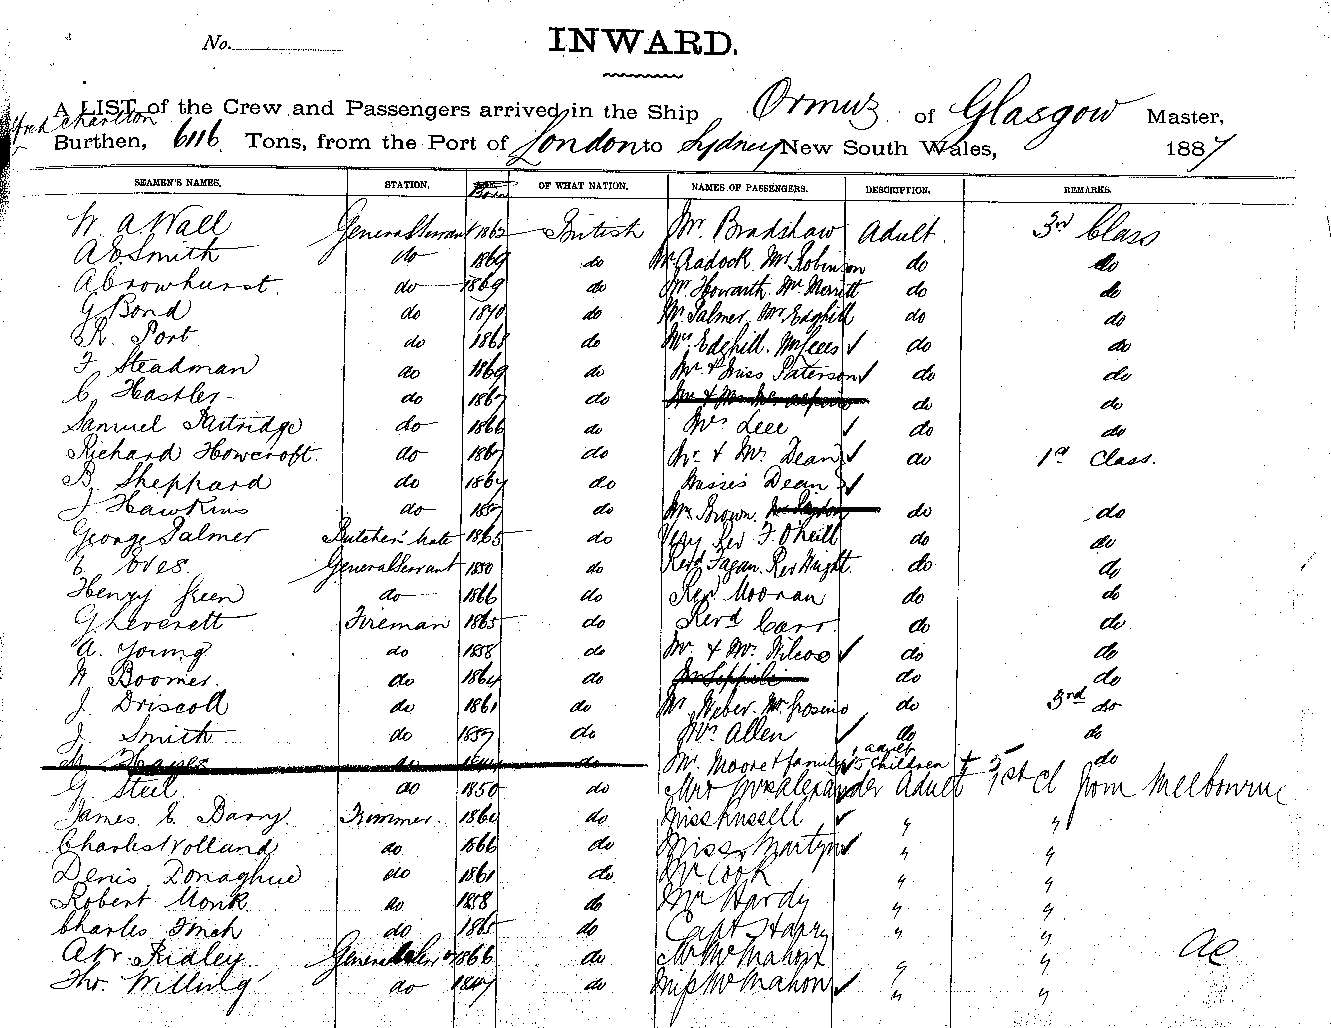 No.
INWARD.
A LIST of the Crew and Passengers arrived in the Ship Ormuz of Glasgow Master,
Charlton
Burthen, 6116 Tons, from the Port of London to Sydney New South Wales, 1887
SEAMEN'S NAMES. STATION. Born OF WHAT NATION. NAMES OF PASSENGERS. DESCRIPTION. REMARKS.
W. A Wall General Servant 1862 British Mr. Bradshaw Adult 3rd Class
A E Smith do 1869 do Mr Cradock. Mr Robinson do do
A Crowhurst. do 1869 do Mr Howarth. Mr Merritt do do
G Bond do 1870 do Mr Palmer. Mr Edghill do do
R. Port do 1868 do Mrs Edghill. do do
F. Steadman do 1869 do Mr & Miss Paterson do do
C Hastler do 1867 do do do
Samuel Partridge do 1866 do Mrs do do
Richard Howcroft. do 1867 do Mr. & Mrs Dean do 1st Class.
B. Sheppard do 1867 do Misses Dean
J Hawkins do do Mrs Brown. do do
George Palmer Butcher's Mate 1865 do Very Rev F. O'Neill do do
E Eves General Servant 1850 do Revd Fagan. Rev Wright. do do
Henry Green do 1866 do Rev Moonan do do
G Leverett Fireman 1865 do Revd Carr do do
A. Young do 1858 do Mr. & Mrs Wilcox do do
W Boomer. do 1864 do do do
J. Driscoll do 1861 do Mr Weber. do 3rd do
J. Smith do 1859 do Mrs Allen do do
Hayes do do Mr. Moore & family adult 5 children do
G. Steel do 1850 do Mr & Mrs Alexander Adult 1st Cl from Melbourne
James E Barry. Trimmer. 1860 do Miss Russell " "
Charles Volland do 1866 do Miss Martyn " "
Denis Donaghue do 1861 do Mr Cook " "
Robert Monk do 1858 do Mr Hardy " "
Charles Finch do 1865 do Capt Harry " "
A W Ridley General Serv 1866 do Mr McMahon " "
Tho. Willing do 1847 do Miss McMahon " "